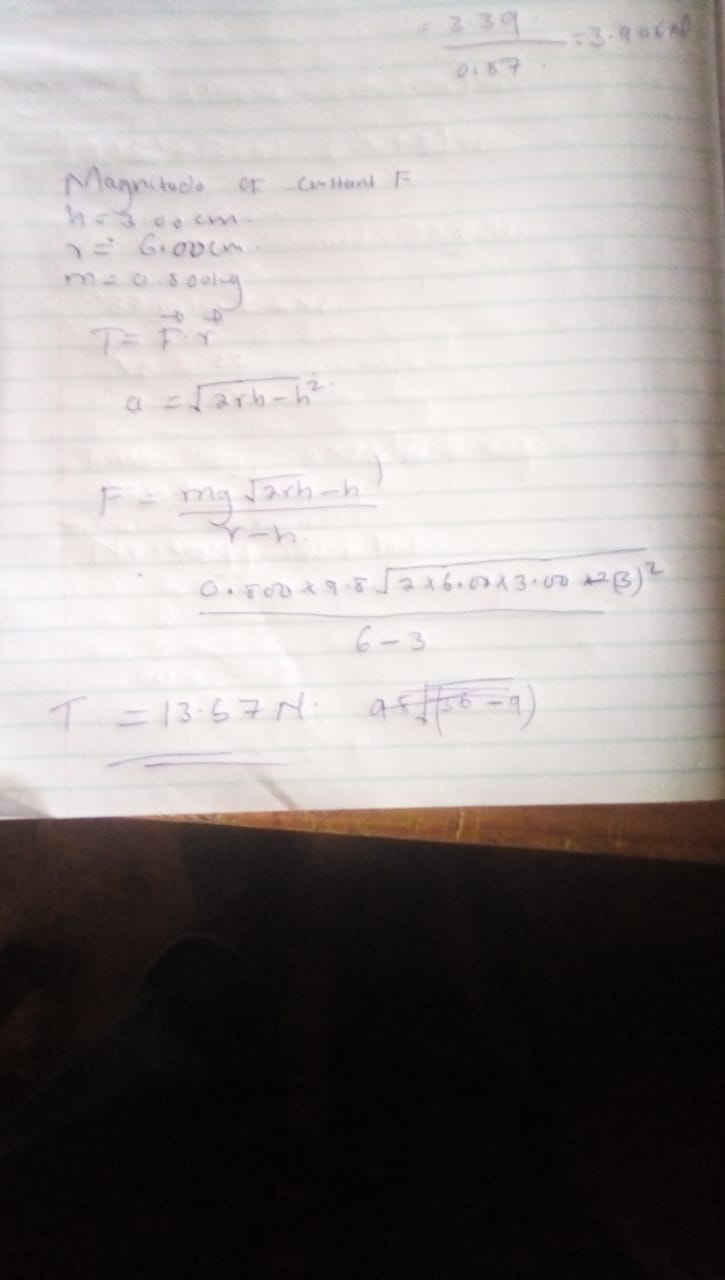 = 3.39 / 0.87 = 3.906N
Magnitude of constant F
h = 3.00cm
r = 6.00cm.
m = 0.800kg
T = F⃗ · r⃗
a = √2rh-h²
F = mg √2rh-h) / r-h
0.800 x 9.8 √2x6.00x3.00 (3)² / 6-3
T = 13.57N.